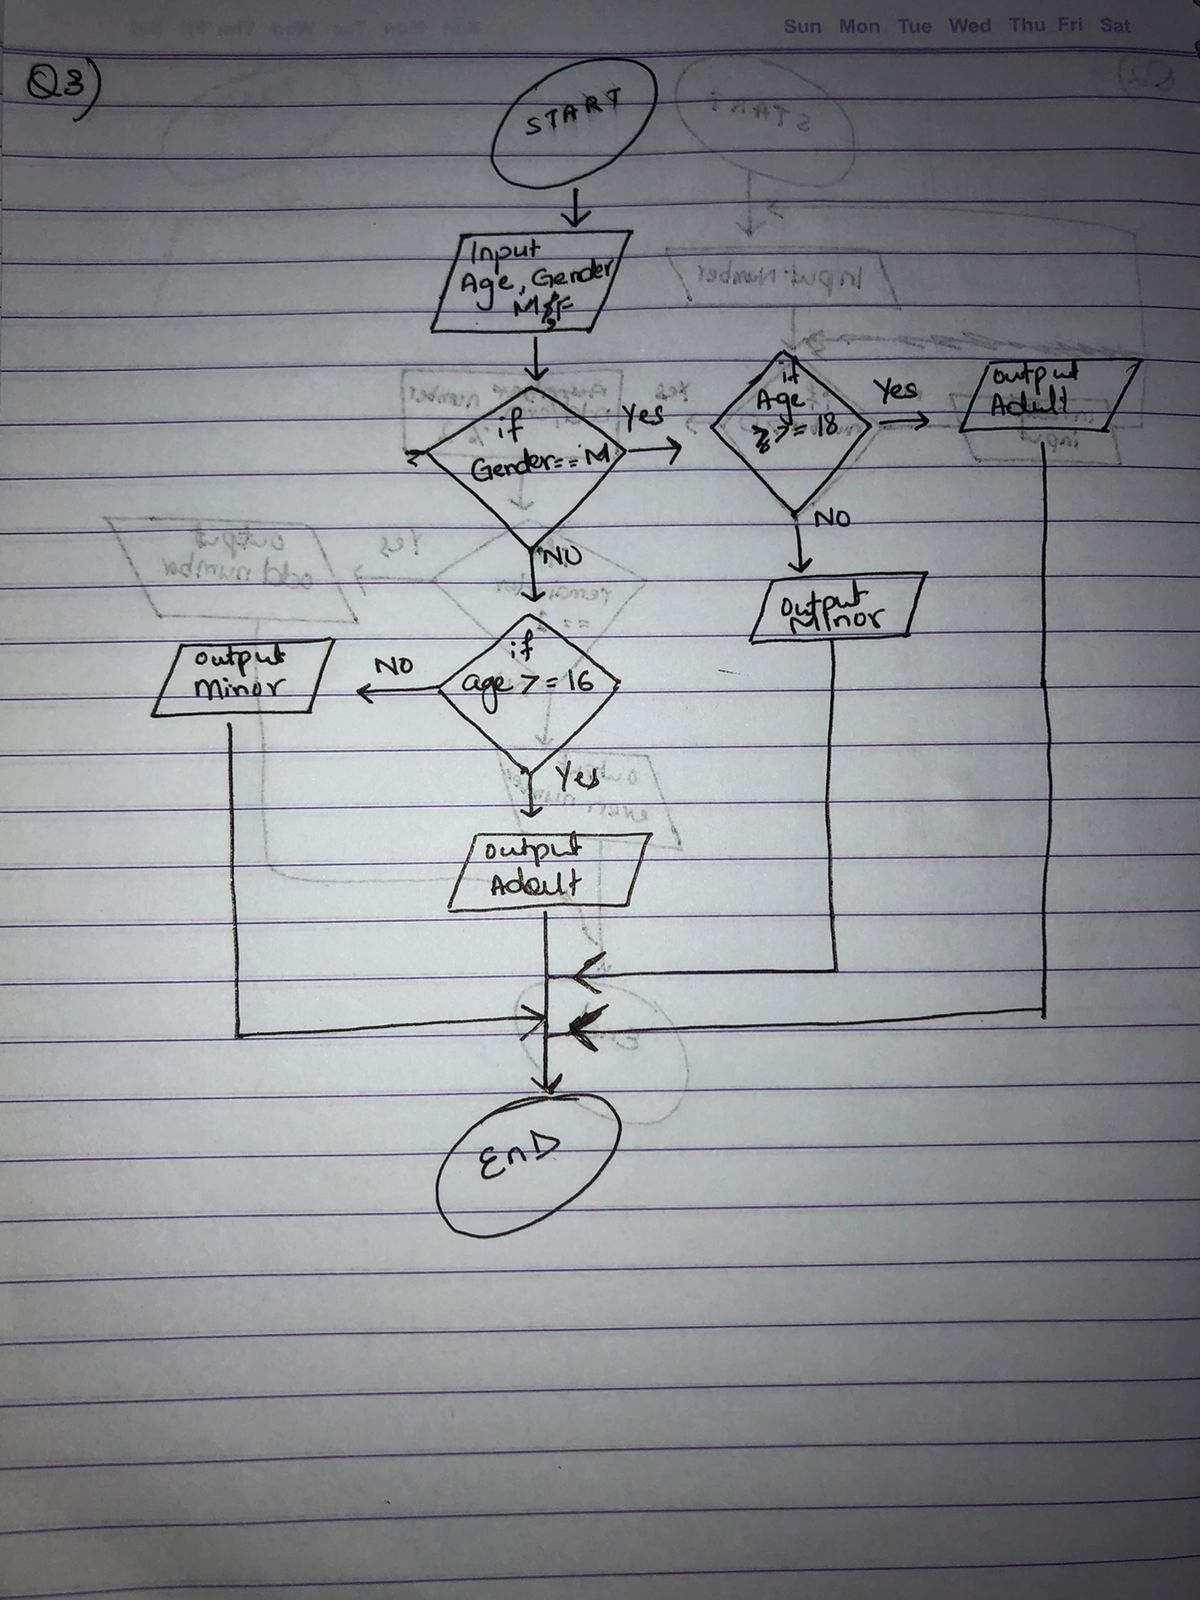 Sun Mon Tue Wed Thu Fri Sat
Q3)
START
Input
Age, Gender
if
Gender==M
Yes
if
Age
>=18
Yes
output
Adult
NO
output
Minor
NO
if
age >=16
NO
output
Minor
Yes
output
Adult
End